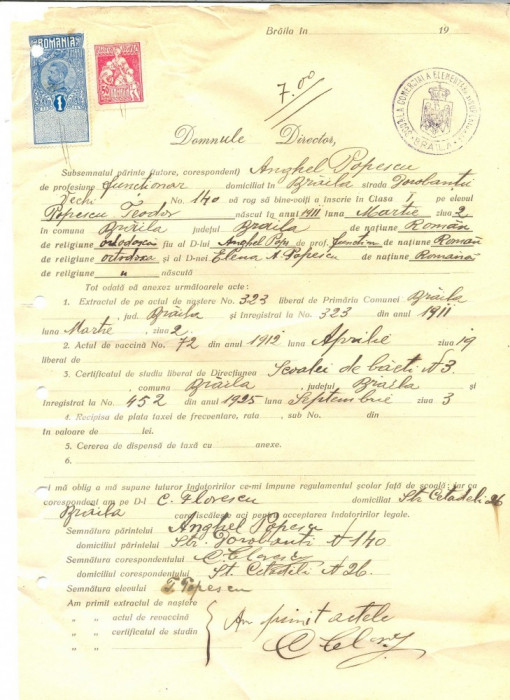 Brăila in 19
ROMANIA
1
7.00
BRAILA
Domnule Director,
Subsemnatul părinte (tutore, corespondent) Anghel Popescu
de profesiune funcționar domiciliat în Brăila strada Dorobanți
Vechi No. 140 vă rog să bine-voiți a înscrie în Clasa I pe elevul
Popescu Teodor născut în anul 1911 luna Martie ziua 2
în comuna Brăila județul Braila de națiune Român
de religiune ortodoxă fiu al D-lui Anghel Pope de prof. funcțion de națiune Român
de religiune ortodoxa și al D-nei Elena A. Popescu de națiune Română
de religiune " născută
Tot odată vă anexez următoarele acte :
1. Extractul de pe actul de naștere No. 323 liberat de Primăria Comunei Brăila
, jud. Brăila și înregistrat la No. 323 din anul 1911
luna Martie ziua 2.
2. Actul de vaccină No. 72 din anul 1912 luna Aprilie ziua 19
liberat de
3. Certificatul de studiu liberat de Direcțiunea Școalei de băeți N 3.
, comuna Brăila, județul Braila și
înregistrat la No. 452 din anul 1925 luna Septembrie ziua 3
4. Recipisa de plata taxei de frecventare, rata , sub No. din
în valoare de lei.
5. Cererea de dispensă de taxă cu anexe.
6.
și mă oblig a mă supune tuturor îndatoririlor ce-mi impune regulamentul școlar față de școală; iar ca
corespondent am pe D-l C. Florescu domiciliat Str. Citadeli 26
Brăila care iscălește aci pentru acceptarea îndatoririlor legale.
Semnătura părintelui Anghel Popescu
domiciliul părintelui Str. Dorobanti N 140
Semnătura corespondentului
domiciliul corespondentului St. Citadeli N 26.
Semnătura elevului T. Popescu
Am primit extractul de naștere
" " actul de revaccină
" " certificatul de studiu
Am primit actele